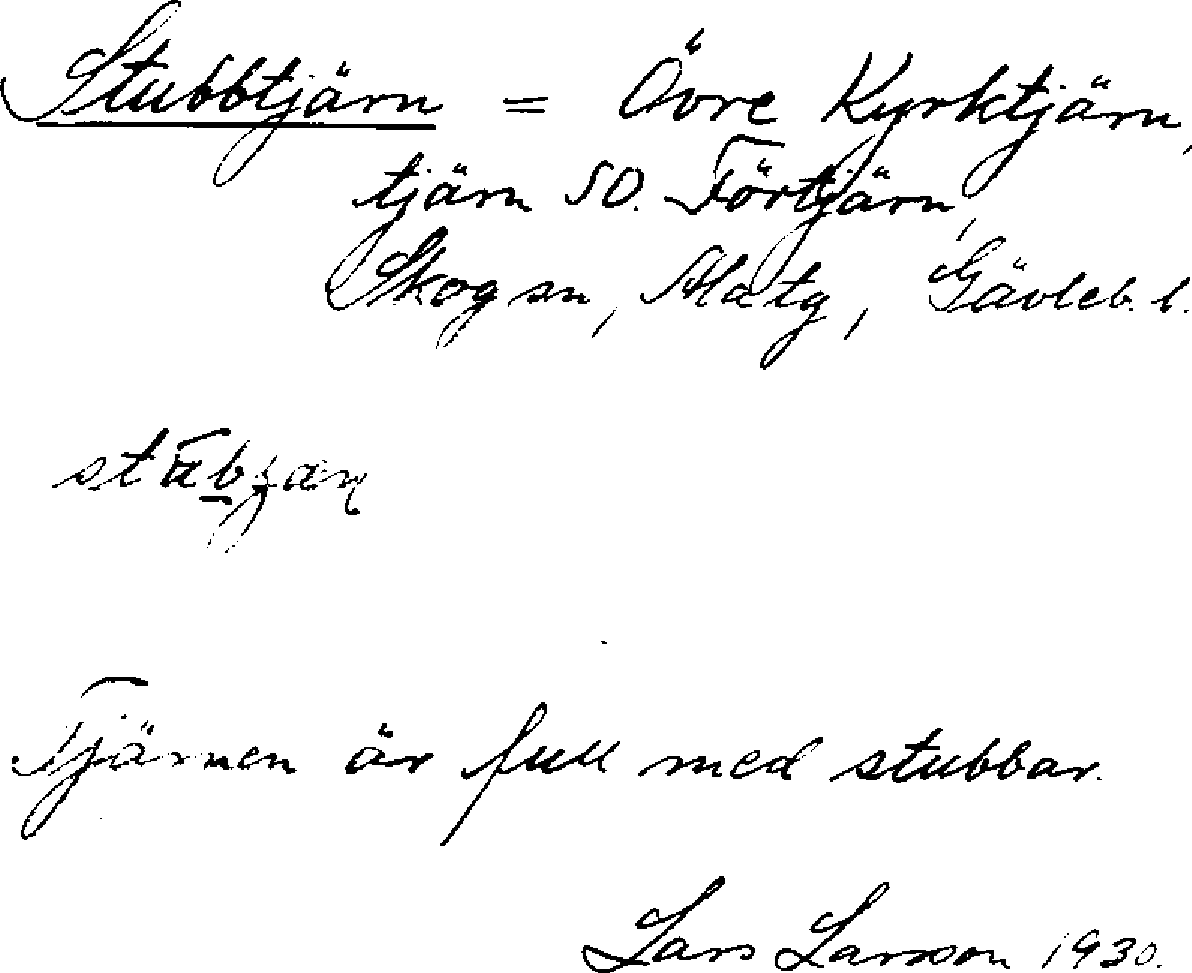 Stubbtjärn = Övre Kyrktjärn,
tjärn SO. Förtjärn,
Skog sn, Ala tg, Gävleb. l.
Tjärnen är full med stubbar.
Lars Larsson 1930.